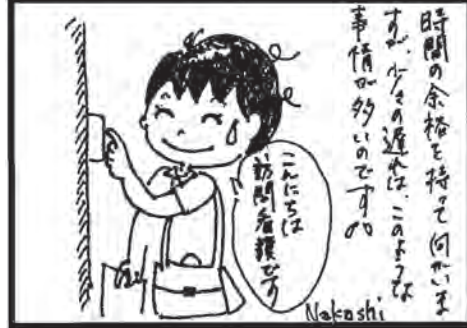 時間の余裕を持って伺いま
すが、少々の遅れは、このような
事情が多いのです
こんにちは
訪問看護です
Nakashi